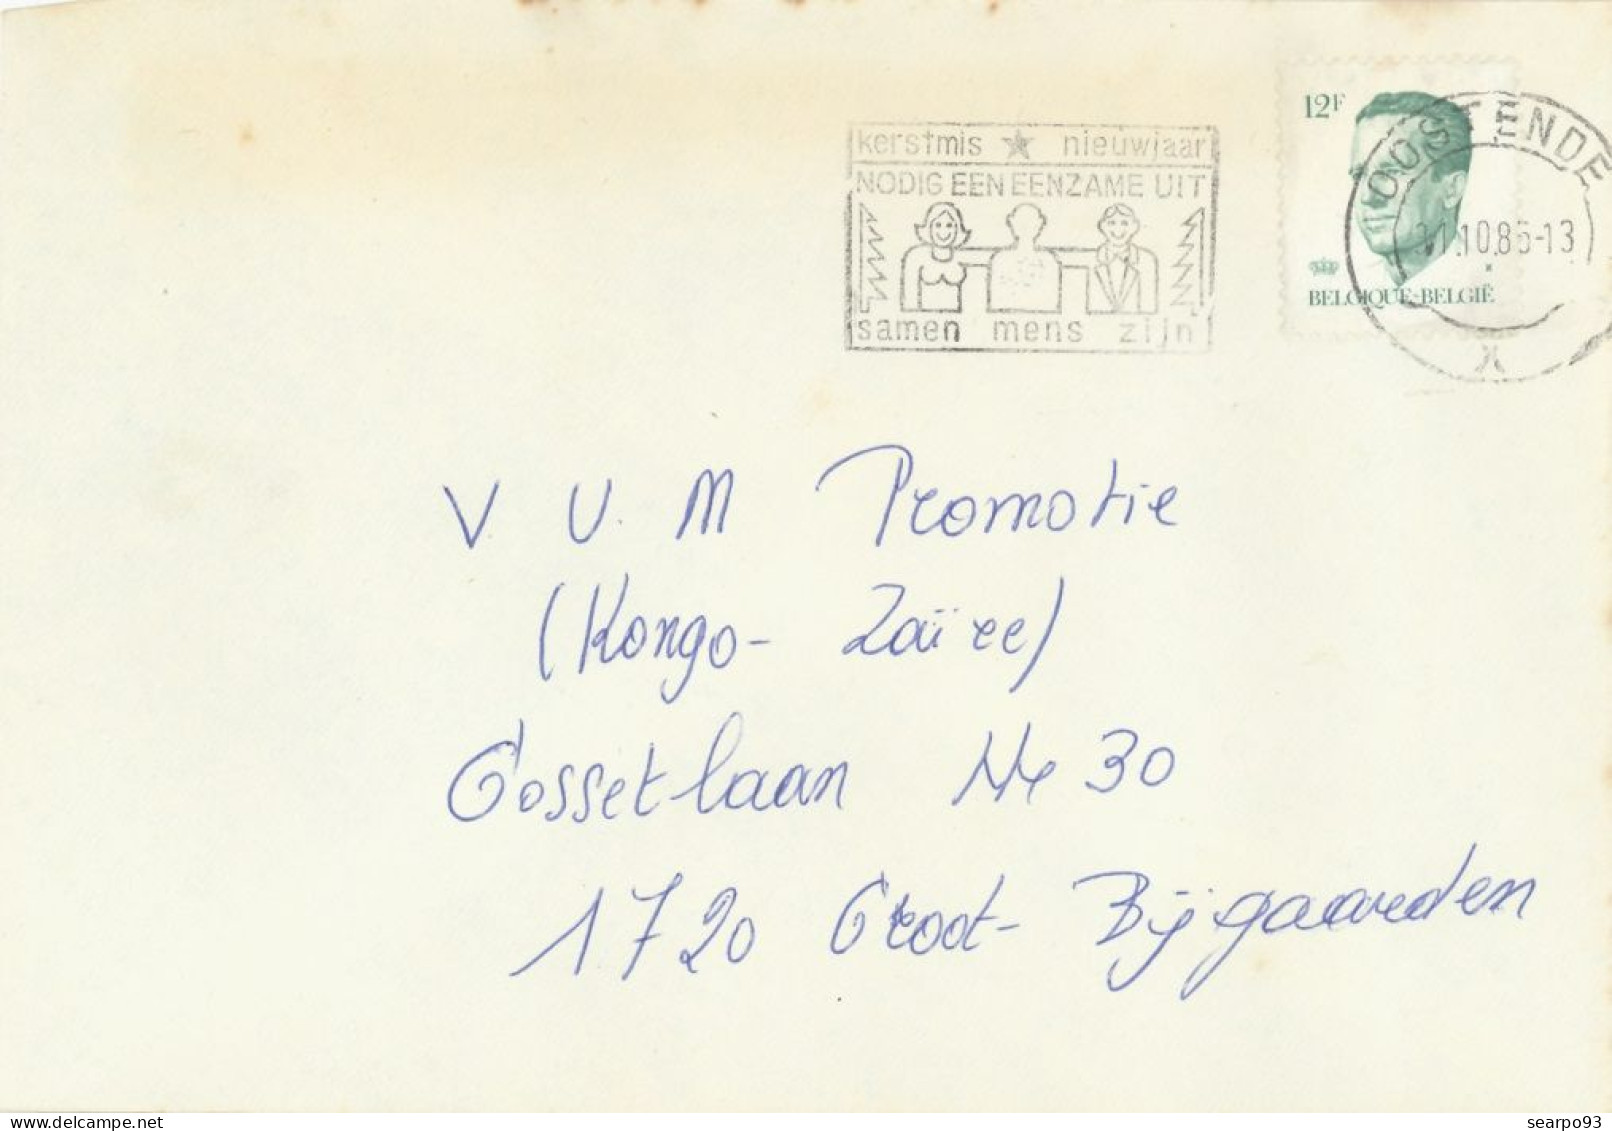 kerstmis nieuwjaar
NODIG EEN EENZAME UIT
samen mens zijn
12F
BELGIQUE-BELGIË
OOSTENDE
10.85-13
X
V U. M Promotie
(Kongo- Zaïre)
Gossetlaan Nr 30
1720 Groot- Bijgaarden
searpo93